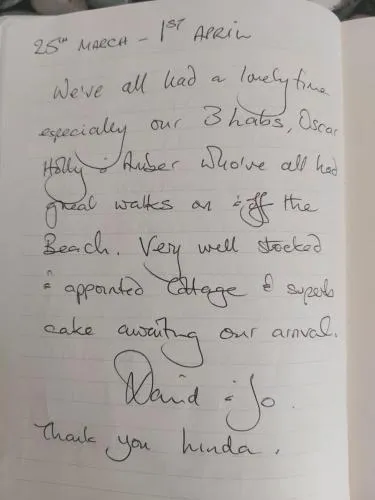 25TH MARCH - 1ST APRIL
We've all had a lovely time
especially our 3 labs, Oscar
Holly & Amber who've all had
great walks on & off the
Beach. Very well stocked
& appointed Cottage & superb
cake awaiting our arrival.
David & Jo.
Thank you Linda.